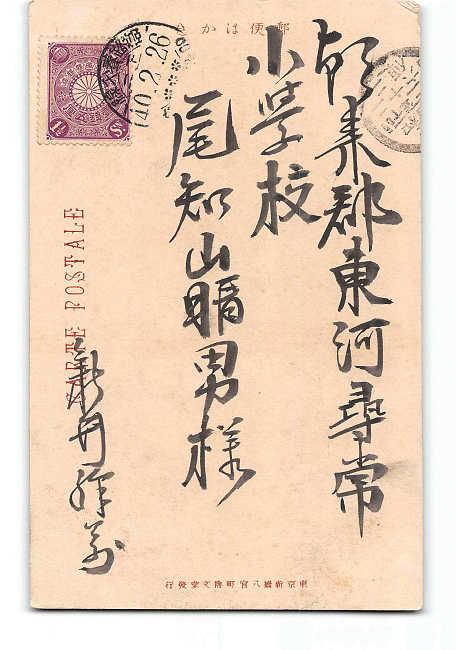 郵便はかき
朝来郡東河尋常
小学校
尾知山晴男様
新井
CARTE POSTALE
40.2.26
1½
Sn.
東京新橋八官町隆文堂發行